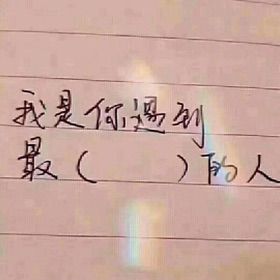 我是你遇到
最(      )的人